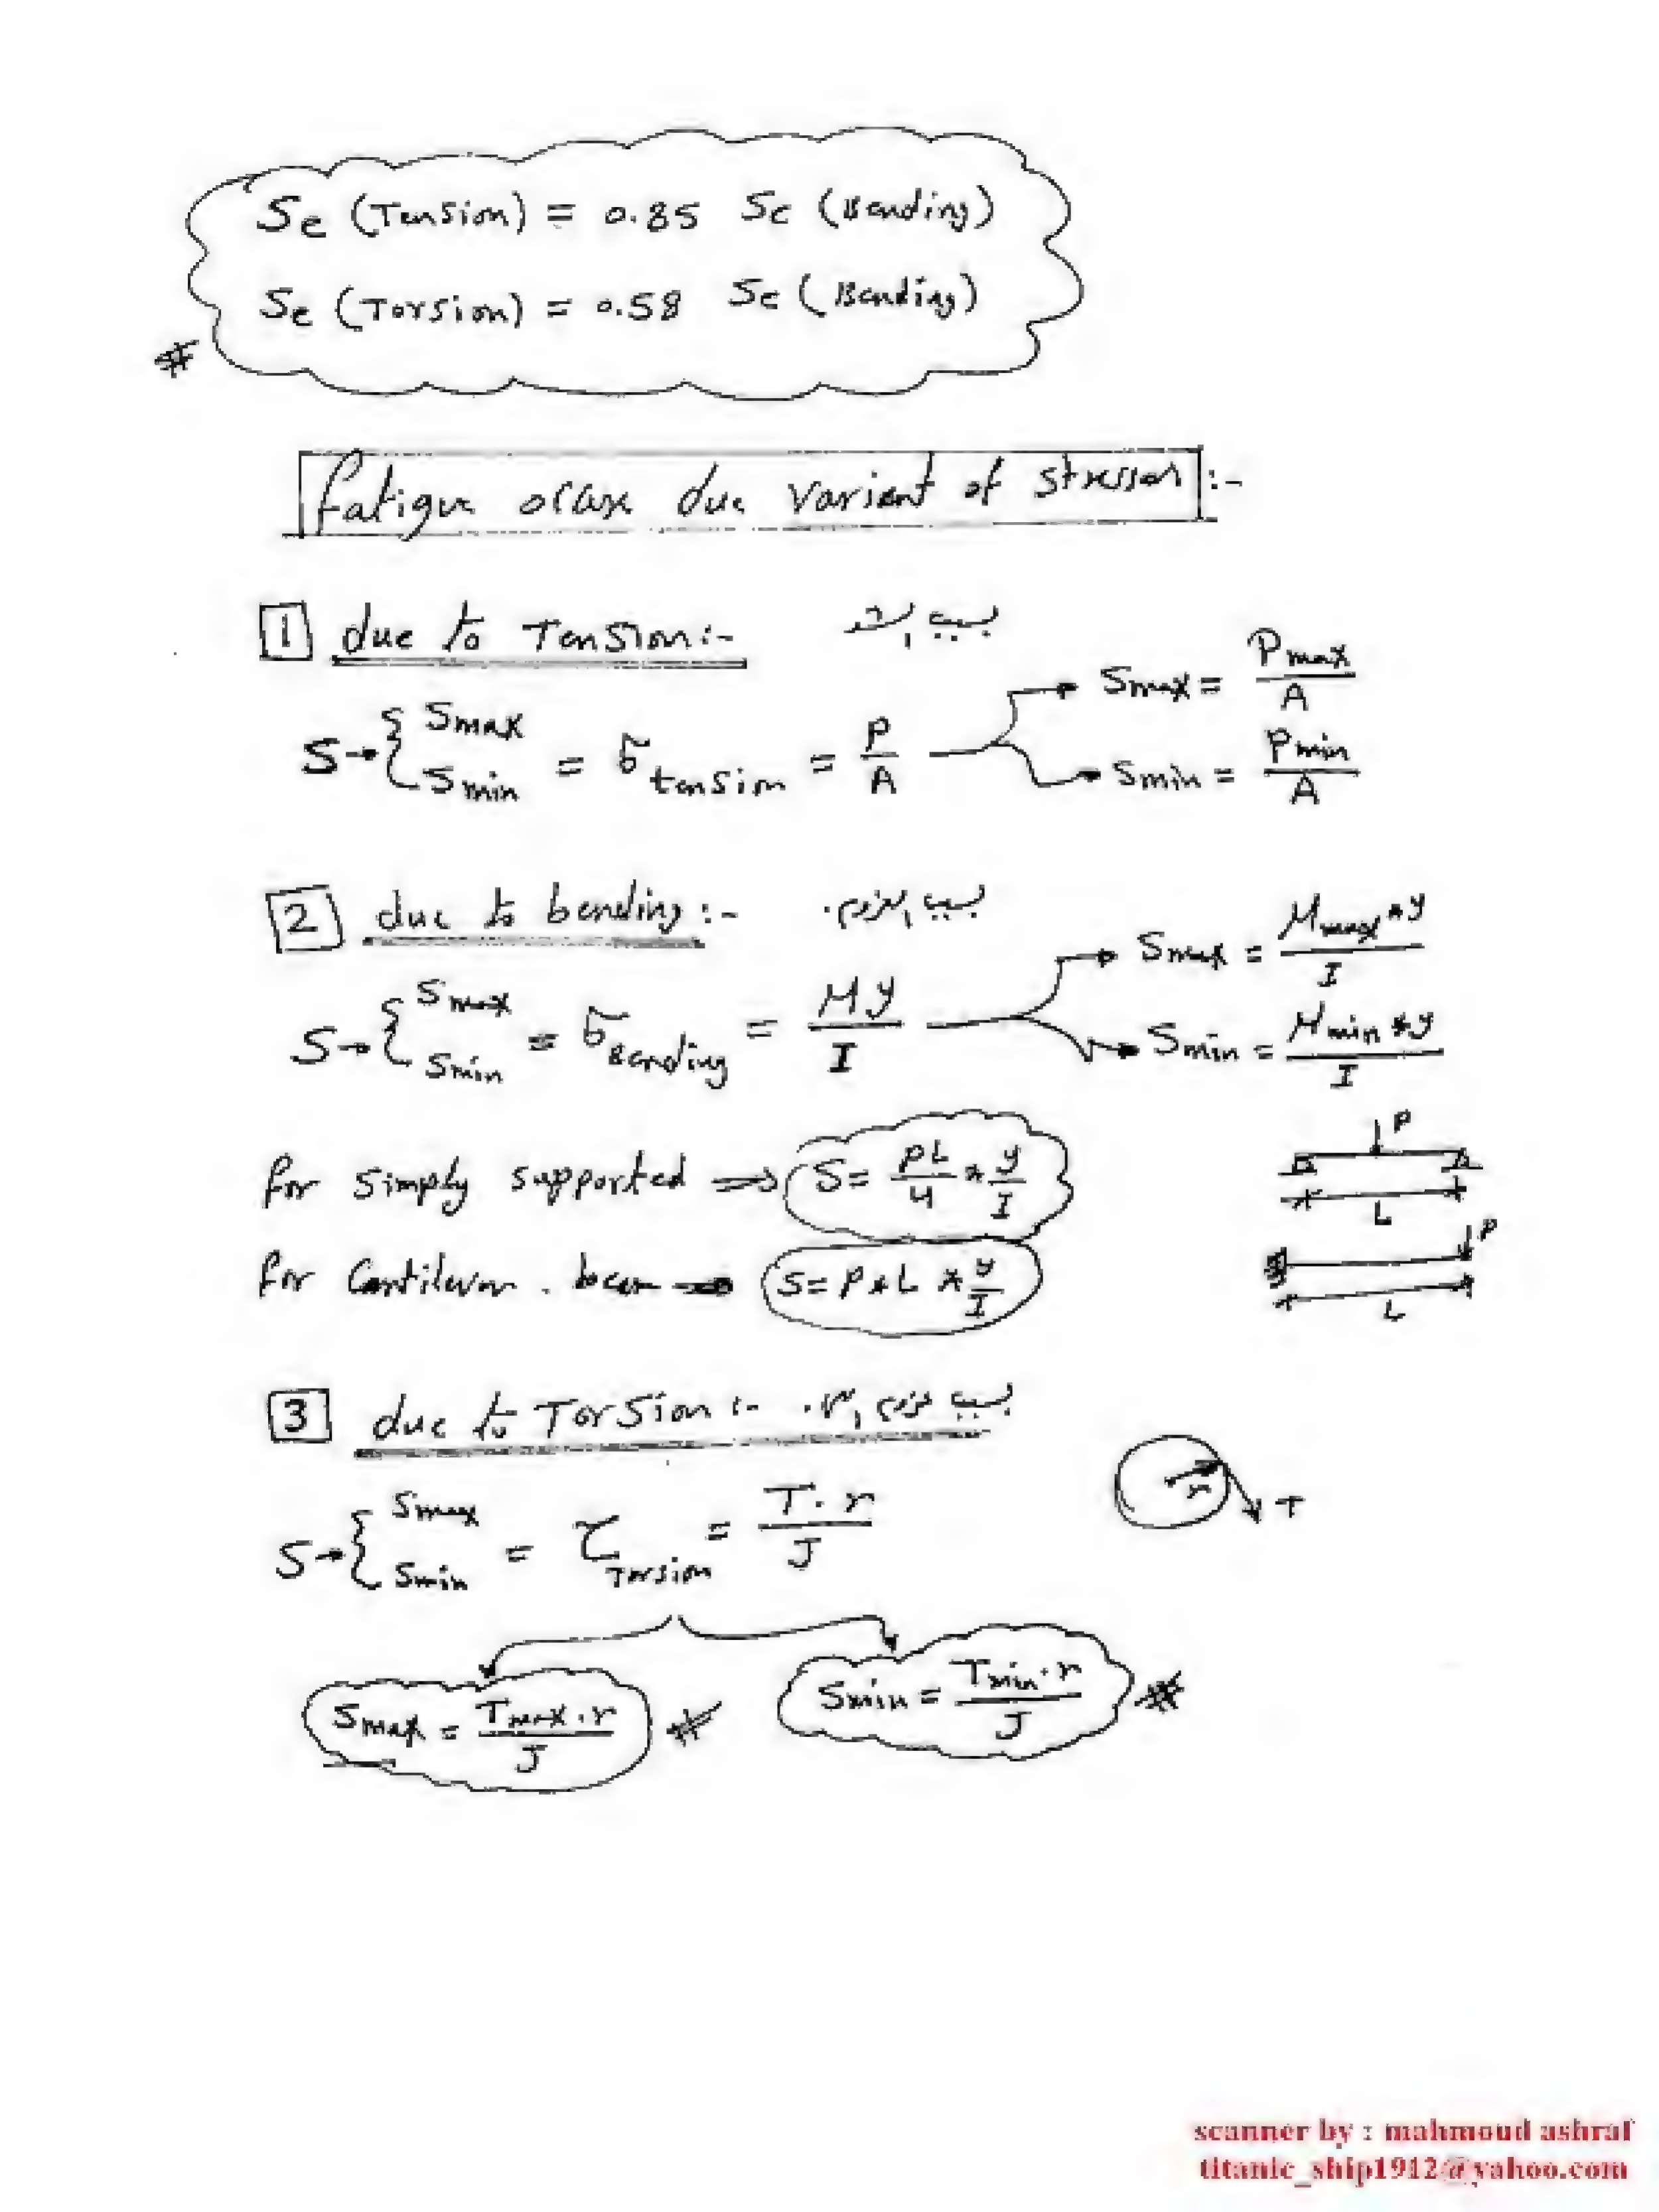 Se (Tension) = 0.85 Se (Bending)
Se (Torsion) = 0.58 Se (Bending)
#
fatigue occur due variant of stresses :-
1 due to Tension :- بسبب الشد
S → { Smax Smin = σ tension = P/A → Smax = Pmax/A
→ Smin = Pmin/A
2 due to bending :- بسبب العزوم.
S → { Smax Smin = σ Bending = My/I → Smax = Mmax*y/I
→ Smin = Mmin*y/I
for simply supported ⇒ S = PL/4 * y/I
P
L
for Cantilever. beam → S = P*L * y/I
P
L
3 due to Torsion :- بسبب عزم
S → { Smax Smin = τ Torsion = T.r/J
r T
Smax = Tmax.r/J #
Smin = Tmin.r/J #
scanner by : mahmoud ashraf
titanic_ship1912@yahoo.com